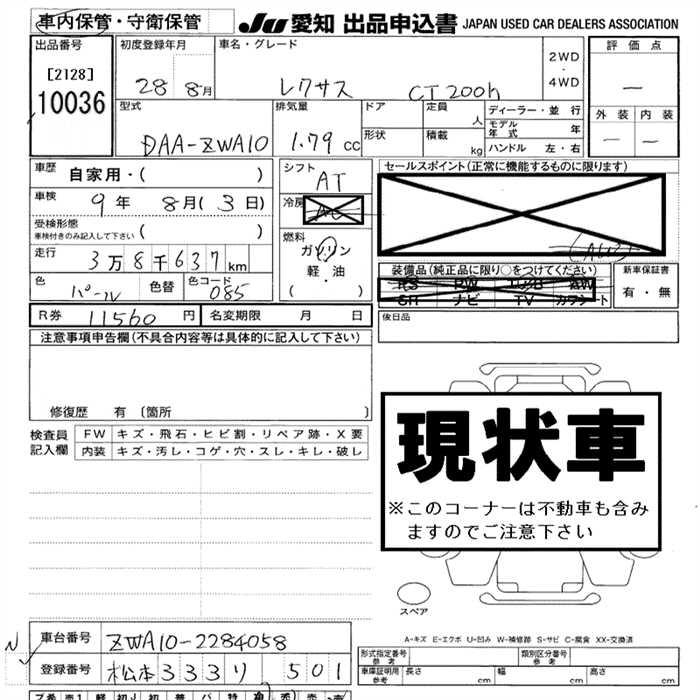 車内保管・守衛保管
JU 愛知 出品申込書 JAPAN USED CAR DEALERS ASSOCIATION
出品番号
[2128]
10036
初度登録年月
28 8月
車名・グレード
レクサス CT200h
2WD
・
4WD
評価点
—
外装 内装
— —
型式
DAA-ZWA10
排気量
1.79 cc
ドア
形状
定員 人
積載 kg
ディーラー・並行
モデル年式 年
ハンドル 左・右
車歴
自家用・( )
車検
9年 8月(3日)
受検形態
車検付きのみ記入して下さい ( )
走行
3万8千637km
色
パール
色替
色コード
085
シフト
AT
冷房
AC
燃料
ガソリン
軽・油
・
( )
セールスポイント(正常に機能するものに限ります)
装備品(純正品に限り○をつけてください)
PS PW エアB AW
SR ナビ TV カワシート
新車保証書
有・無
R券 11560 円
名変期限 月 日
後日品
注意事項申告欄(不具合内容等は具体的に記入して下さい)
修復歴 有 〔箇所 〕
検査員記入欄
FW キズ・飛石・ヒビ割・リペア跡・X要
内装 キズ・汚レ・コゲ・穴・スレ・キレ・破レ
現状車
※このコーナーは不動車も含み
ますのでご注意下さい
スペア
A-キズ E-エクボ U-凹み W-補修跡 S-サビ C-腐食 XX-交換済
車台番号
ZWA10-2284058
登録番号
松本333り 501
形式指定番号
参考
類別区分番号
参考
車庫証明用
参考
長さ cm
幅 cm
高さ cm